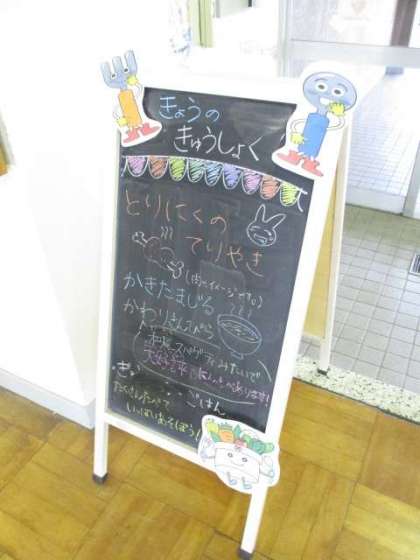 きょうの
きゅうしょく
とりにくの
てりやき
(肉のイメージです。)
かきたまじる
かわりきんぴら
スパゲティみたいで
大好評
あります!
ごはん
たくさんたべて
いっぱいあそぼう!